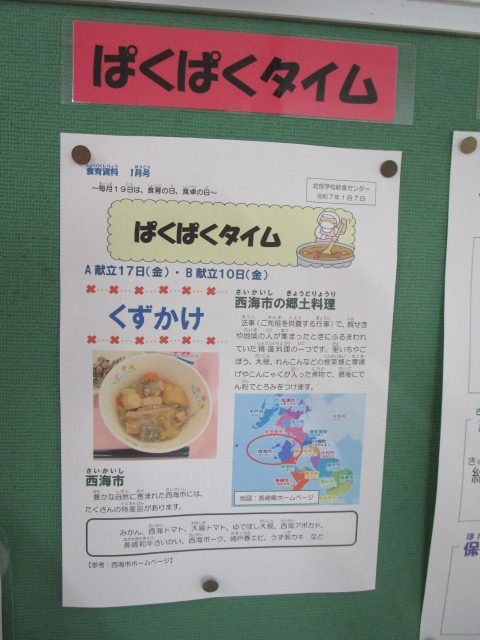 ぱくぱくタイム
食育資料　1月号
～毎月19日は、食育の日、食卓の日～
北部学校給食センター
令和7年1月7日
ぱくぱくタイム
A献立17日(金)・B献立10日(金)
くずかけ
さいかいし　きょうどりょうり
西海市の郷土料理
法事(ご先祖を供養する行事)で、親せき
や地域の人が集まったときにふるまわれ
ていた精進料理の一つです。里いもやご
ぼう、大根、れんこんなどの根菜類と厚揚
げやこんにゃくが入った煮物で、最後にで
ん粉でとろみをつけます。
さいかいし
西海市
豊かな自然に恵まれた西海市には、
たくさんの特産品があります。
地図：長崎県ホームページ
みかん、西海トマト、大島トマト、ゆでぼし大根、西海アボカド、
長崎和牛さいかい、西海ポーク、崎戸春エビ、うず潮カキ　など
【参考：西海市ホームページ】
保